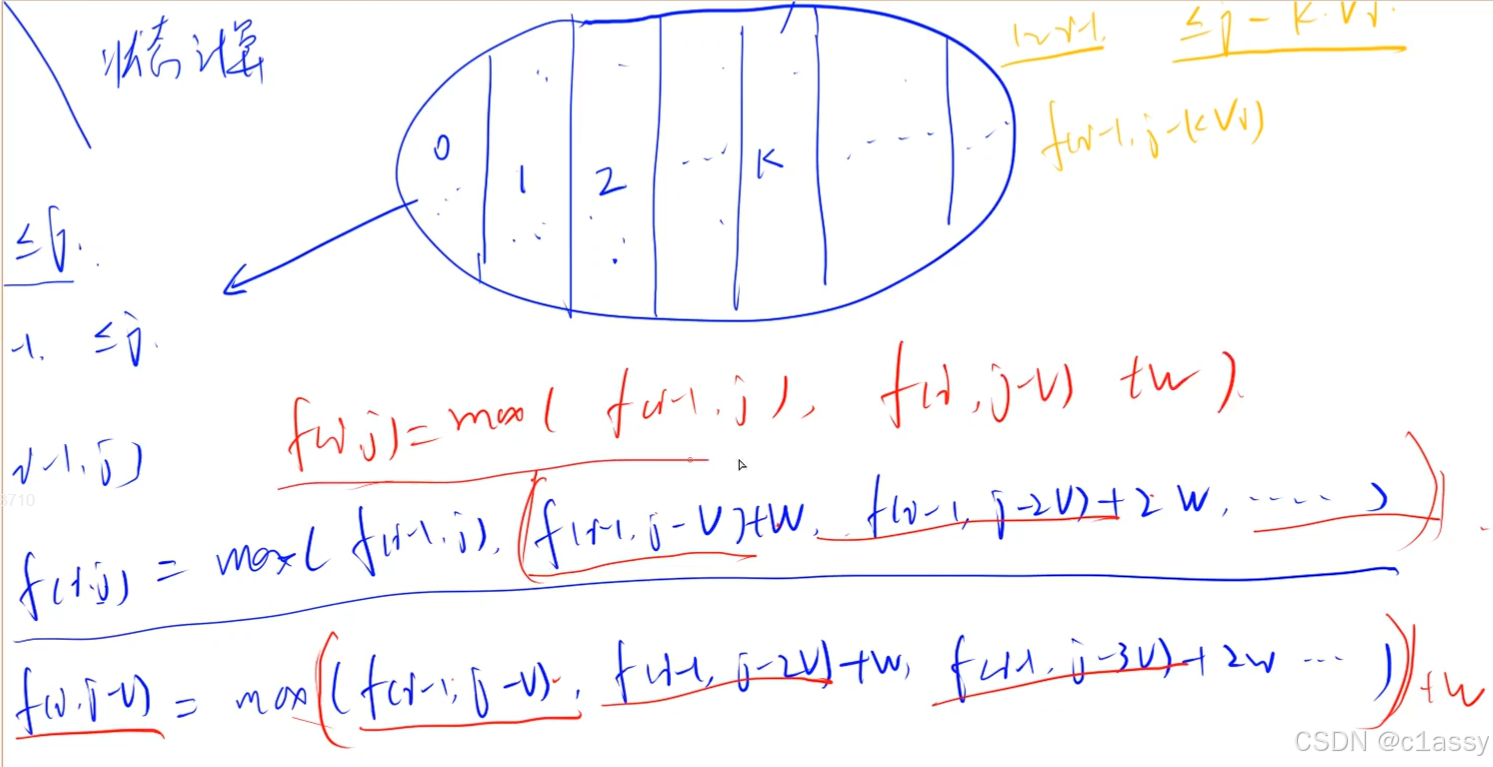 状态计算
1~i-1. ≤j-k·Vi.
f(i-1, j-kVi)
0 1 2 ... K ...
≤j.
-1. ≤j.
i-1, j)
f(i,j)=max( f(i-1,j), f(i,j-V) +W ).
3710
f(i,j) = max( f(i-1,j), f(i-1,j-V)+W, f(i-1,j-2V)+2W, ...... )
f(i,j-V) = max( f(i-1,j-V), f(i-1,j-2V)+W, f(i-1,j-3V)+2W ... ) +W
CSDN @c1assy